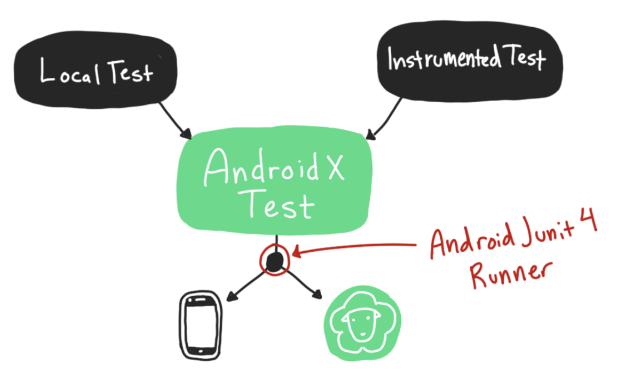 Local Test
Instrumented Test
AndroidX
Test
Android Junit 4
Runner